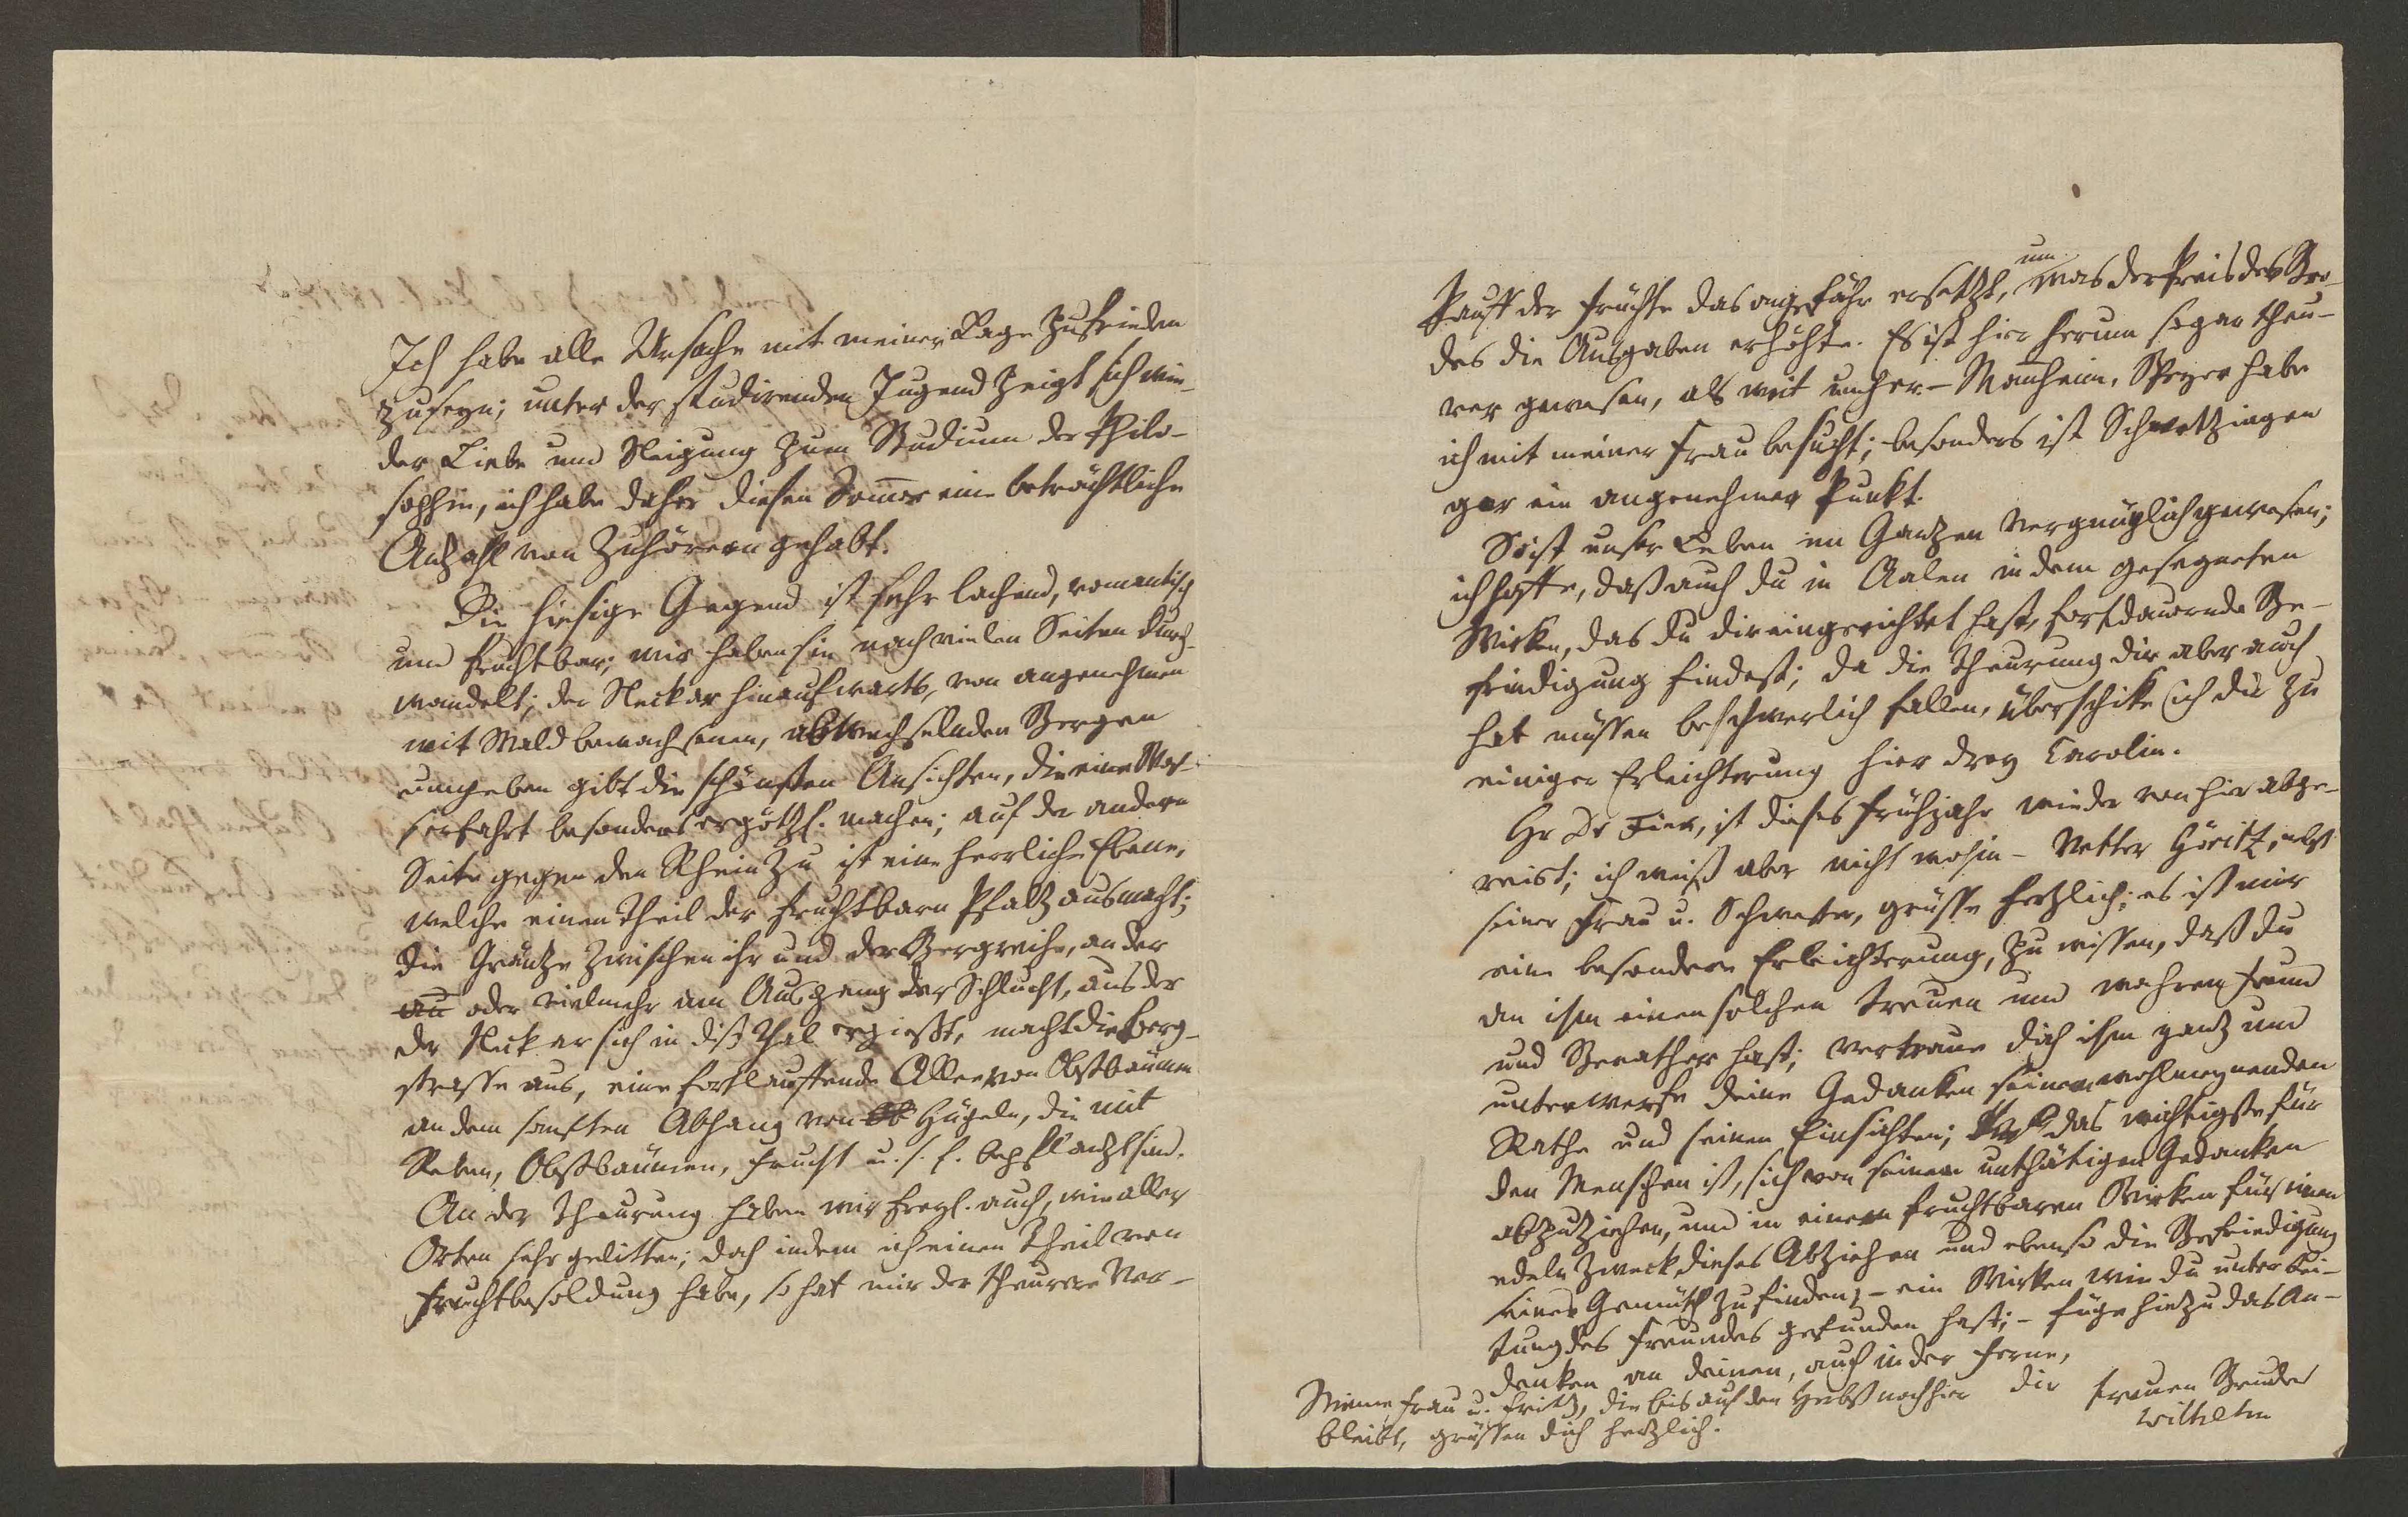 Ich habe alle Ursache mit meiner Lage zufrieden
zuseyn; unter der studirenden Jugend zeigt sich wie-
der Liebe und Neigung zum Studium der Philo-
sophie, ich habe daher diesen Som̄er eine beträchtliche
Anzahl von Zuhörern gehabt.
Die hiesige Gegend ist sehr lachend, romantisch
und fruchtbar; wir haben sie nach vielen Seiten durch-
wandelt; der Neckar hinaufwarts, von angenehmen
mit Wald bewachsenen, abwechselnden Bergen
umgeben gibt die schönsten Ansichten, die eine Was-
serfahrt besonders ergötzl. machen; auf der andern
Seite gegen den Rhein zu ist eine herrliche Ebene,
welche einen Theil der fruchtbarn Pfalz ausmacht;
die Gräntze zwischen ihr und der Bergreihe, an der
au oder vielmehr am Ausgang der Schlucht, aus der
der Neckar sich in diß Thal ergießt, macht die Berg-
strasse aus, eine fortlauffende Allee von Obstbäumen
an dem sanften Abhang von Ob Hügeln, die mit
Reben, Obstbäumen, Frucht u. s. f. bepflanzt sind.
An der Theurung haben wir freyl. auch, wie aller
Orten sehr gelitten; doch indem ich einen Theil von
Fruchtbesoldung habe, so hat mir der theurere Ver-
kauff der Früchte das ongefähr ersetzt, um was der Preis des Bro-
des die Ausgaben erhöhte. Es ist hier herum sogar theu-
rer gewesen, als weit umher. - Man̄heim, Speyer habe
ich mit meiner Frau besucht; besonders ist Schwetzingen
gar ein angenehmer Punkt.
So ist unser Leben im Gantzen vergnüglich gewesen;
ich hoffe, daß auch du in Aalen in dem gesegneten
Wirken, das du dir eingerichtet hast, fortdauernde Be-
friedigung findest; da die Theurung dir aber auch
hat müssen beschwerlich fallen, überschike ich dir zu
einiger Erleichterung hier drey Carolin.
Hr Dr ist dieses Frühjahr wieder von hier abge-
reist; ich weiß aber nicht wohin - Vetter Göritz, nebst
seiner Frau u. Schwester, grüsse hertzlich; es ist mir
eine besondere Erleichterung, zu wissen, daß du
an ihm einen solchen treuen und wahren Freund
und Berather hast; vertraue dich ihm gantz und
unterwerfe deine Gedanken seinem wohlmeynenden
Rathe und seinen Einsichten; das wichtigste für
den Menschen ist, sich von seinen unthätigen Gedanken
abzuziehen, und in einem fruchtbaren Wirken für einen
edeln Zweck dieses Abziehen und ebenso die Befriedigung
seines Gemüths zu finden; - ein Wirken wie du unter Lei-
tung des Freundes gefunden hast; - füge hinzu das An-
denken an deinen, auch in der Ferne,
dir treuen Bruder
Wilhelm
Meine Frau u. Fritz, die bis auf den Herbst noch hier
bleibt, grüssen dich hertzlich.